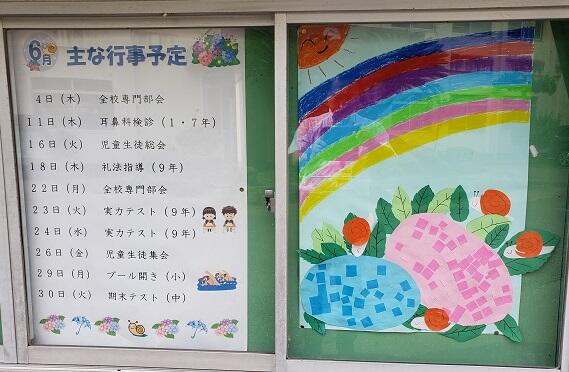 6月 主な行事予定
4日(木) 全校専門部会
11日(木) 耳鼻科検診(1・7年)
16日(火) 児童生徒総会
18日(木) 礼法指導(9年)
22日(月) 全校専門部会
23日(火) 実力テスト(9年)
24日(水) 実力テスト(9年)
26日(金) 児童生徒集会
29日(月) プール開き(小)
30日(火) 期末テスト(中)